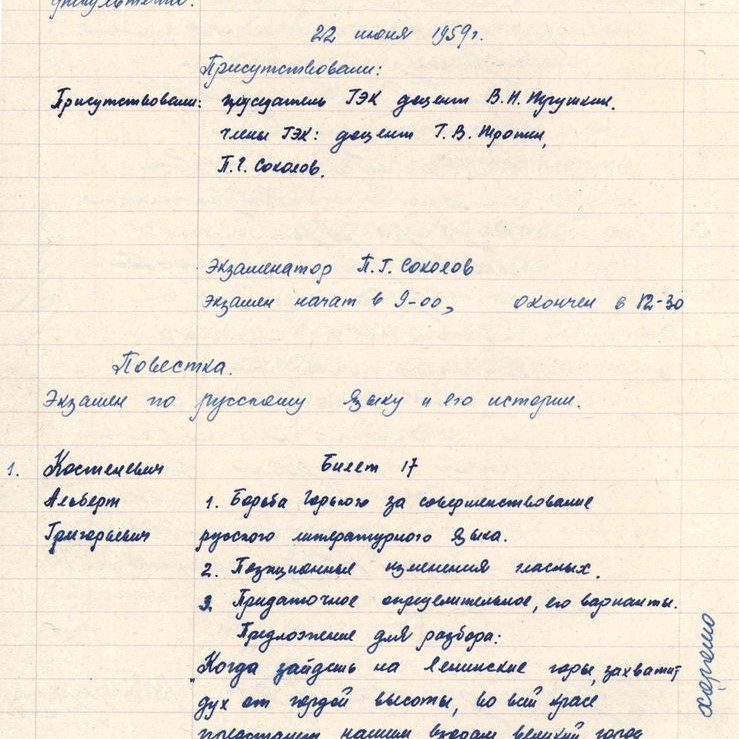 факультета.
22 июня 1959г.
Присутствовали:
Присутствовали: председатель ГЭК доцент В.И. Трушкин.
члены ГЭК: доцент Г.В. Тропин,
П.Г. Соколов.
Экзаменатор П.Г. Соколов
Экзамен начат в 9-00, окончен в 12-30
Повестка.
Экзамен по русскому языку и его истории.
1. Костеневич Билет 17
Альберт 1. Борьба Горького за совершенствование
Григорьевич русского литературного языка.
2. Позиционные изменения гласных.
3. Придаточное определительное, его варианты.
Предложение для разбора:
"Когда зайдешь на Ленинские горы, захватит
дух от гордой высоты, во всей красе
предстанет нашим взорам великий город
хорошо